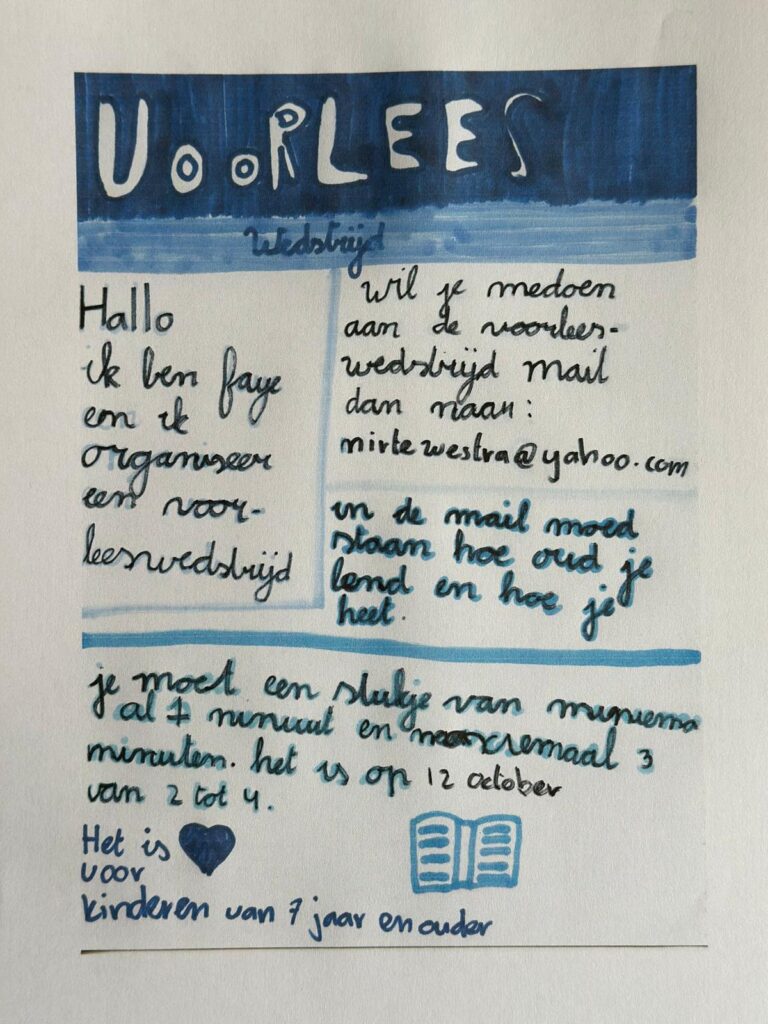 VOORLEES
Wedstrijd
Hallo
ik ben faye
en ik
organiseer
een voor-
leeswedstrijd
Wil je medoen
aan de voorlees-
wedstrijd mail
dan naar:
mirtewestra@yahoo.com
in de mail moed
staan hoe oud je
bend en hoe je
heet.
je moet een stukje van
al 1 minuut en maxsemaal 3
minuten. het is op 12 october
van 2 tot 4.
Het is
voor
kinderen van 7 jaar en ouder